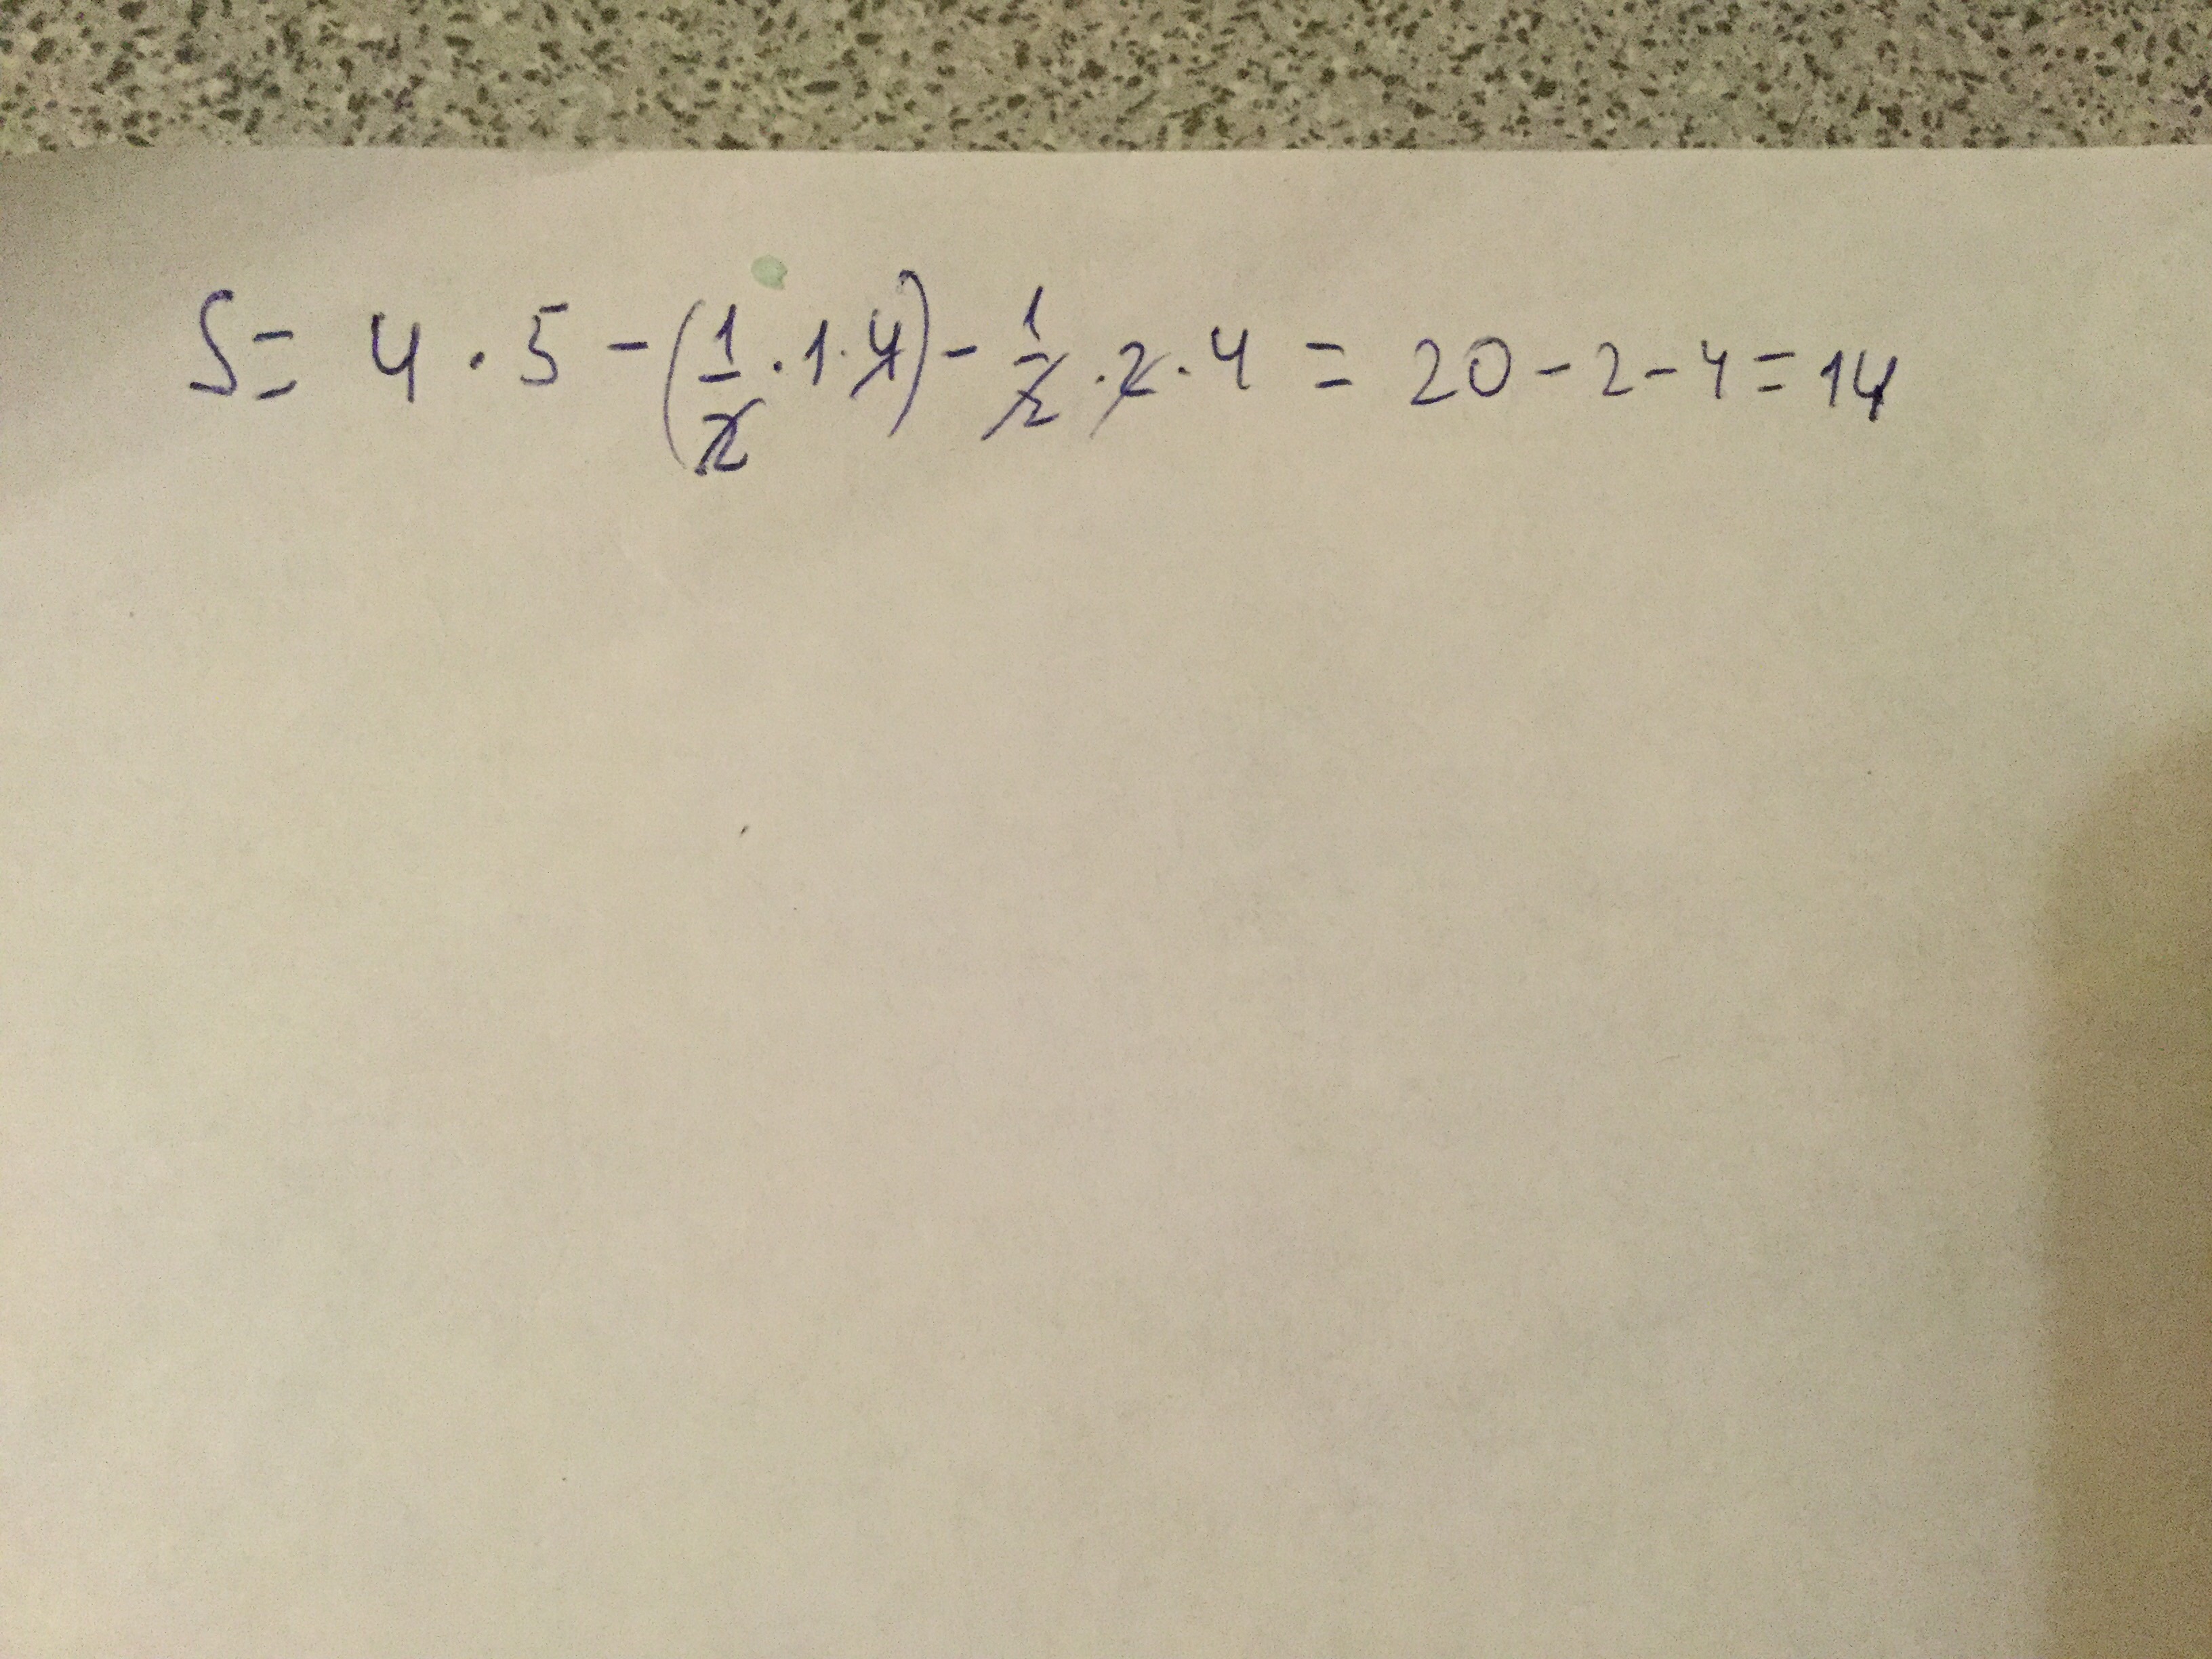 S = 4 · 5 - (1/2 · 1 · 4) - 1/2 · 2 · 4 = 20 - 2 - 4 = 14